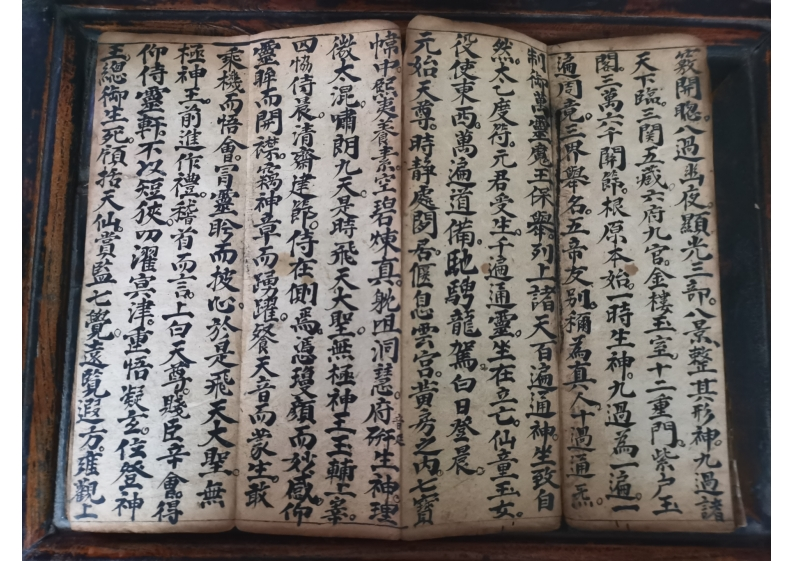 竅開聰。八過幽夜。顯光三部。八景整其形神。九過諸
天下臨。三関五藏六府九宮。金樓玉室十二重門。紫戸玉
閣。三萬六千關節。根原本始。一時生神。九過為一遍。一
遍周竟。三界舉名。五帝友别。稱為真人。十過通炁。
制御萬靈。魔王保舉。列上諸天。百遍通神。坐致自
然。太乙度符。元君受生。千遍通靈。坐在立亡。仙童玉女。
役使東西。萬遍道備。馳騁龍駕。白日登晨
元始天尊。時靜處閑居。偃息雲宮。黄房之内。七寶
幃中。熙夷養素。空碧煉真。躭咀洞慧。府研生神。理
微太混。嘯朗九天。是時飛天大聖。無極神王。玉輔上宰。
四協侍晨。清齋建節。侍在側焉。憑瓊顔而妙感。仰
靈眸而開襟。竊神章而踴躍。餐天音而蒙生。敢
乘機而悟會。冒靈盻而披心。於是飛天大聖。無
極神王。前進作禮。稽首而言。上白天尊。賤臣幸會。得
仰侍靈軿。不以短狹。叨濯冥津。重悟凝玄。位登神
王。總御生死。領括天仙。賞監七覺。遠覽遐方。雍觀上